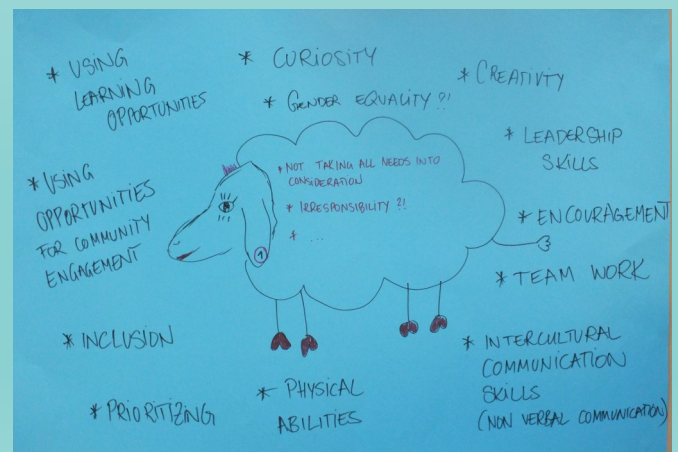 * USING
LEARNING
OPPORTUNITIES
* CURIOSITY
* GENDER EQUALITY ?!
* CREATIVITY
* LEADERSHIP
SKILLS
* USING
OPPORTUNITIES
FOR COMMUNITY
ENGAGEMENT
* NOT TAKING ALL NEEDS INTO
CONSIDERATION
* IRRESPONSIBILITY ?!
* ...
1
* ENCOURAGEMENT
* TEAM WORK
* INCLUSION
* INTERCULTURAL
COMMUNICATION
SKILLS
(NON VERBAL COMMUNICATION)
* PRIORITIZING
* PHYSICAL
ABILITIES